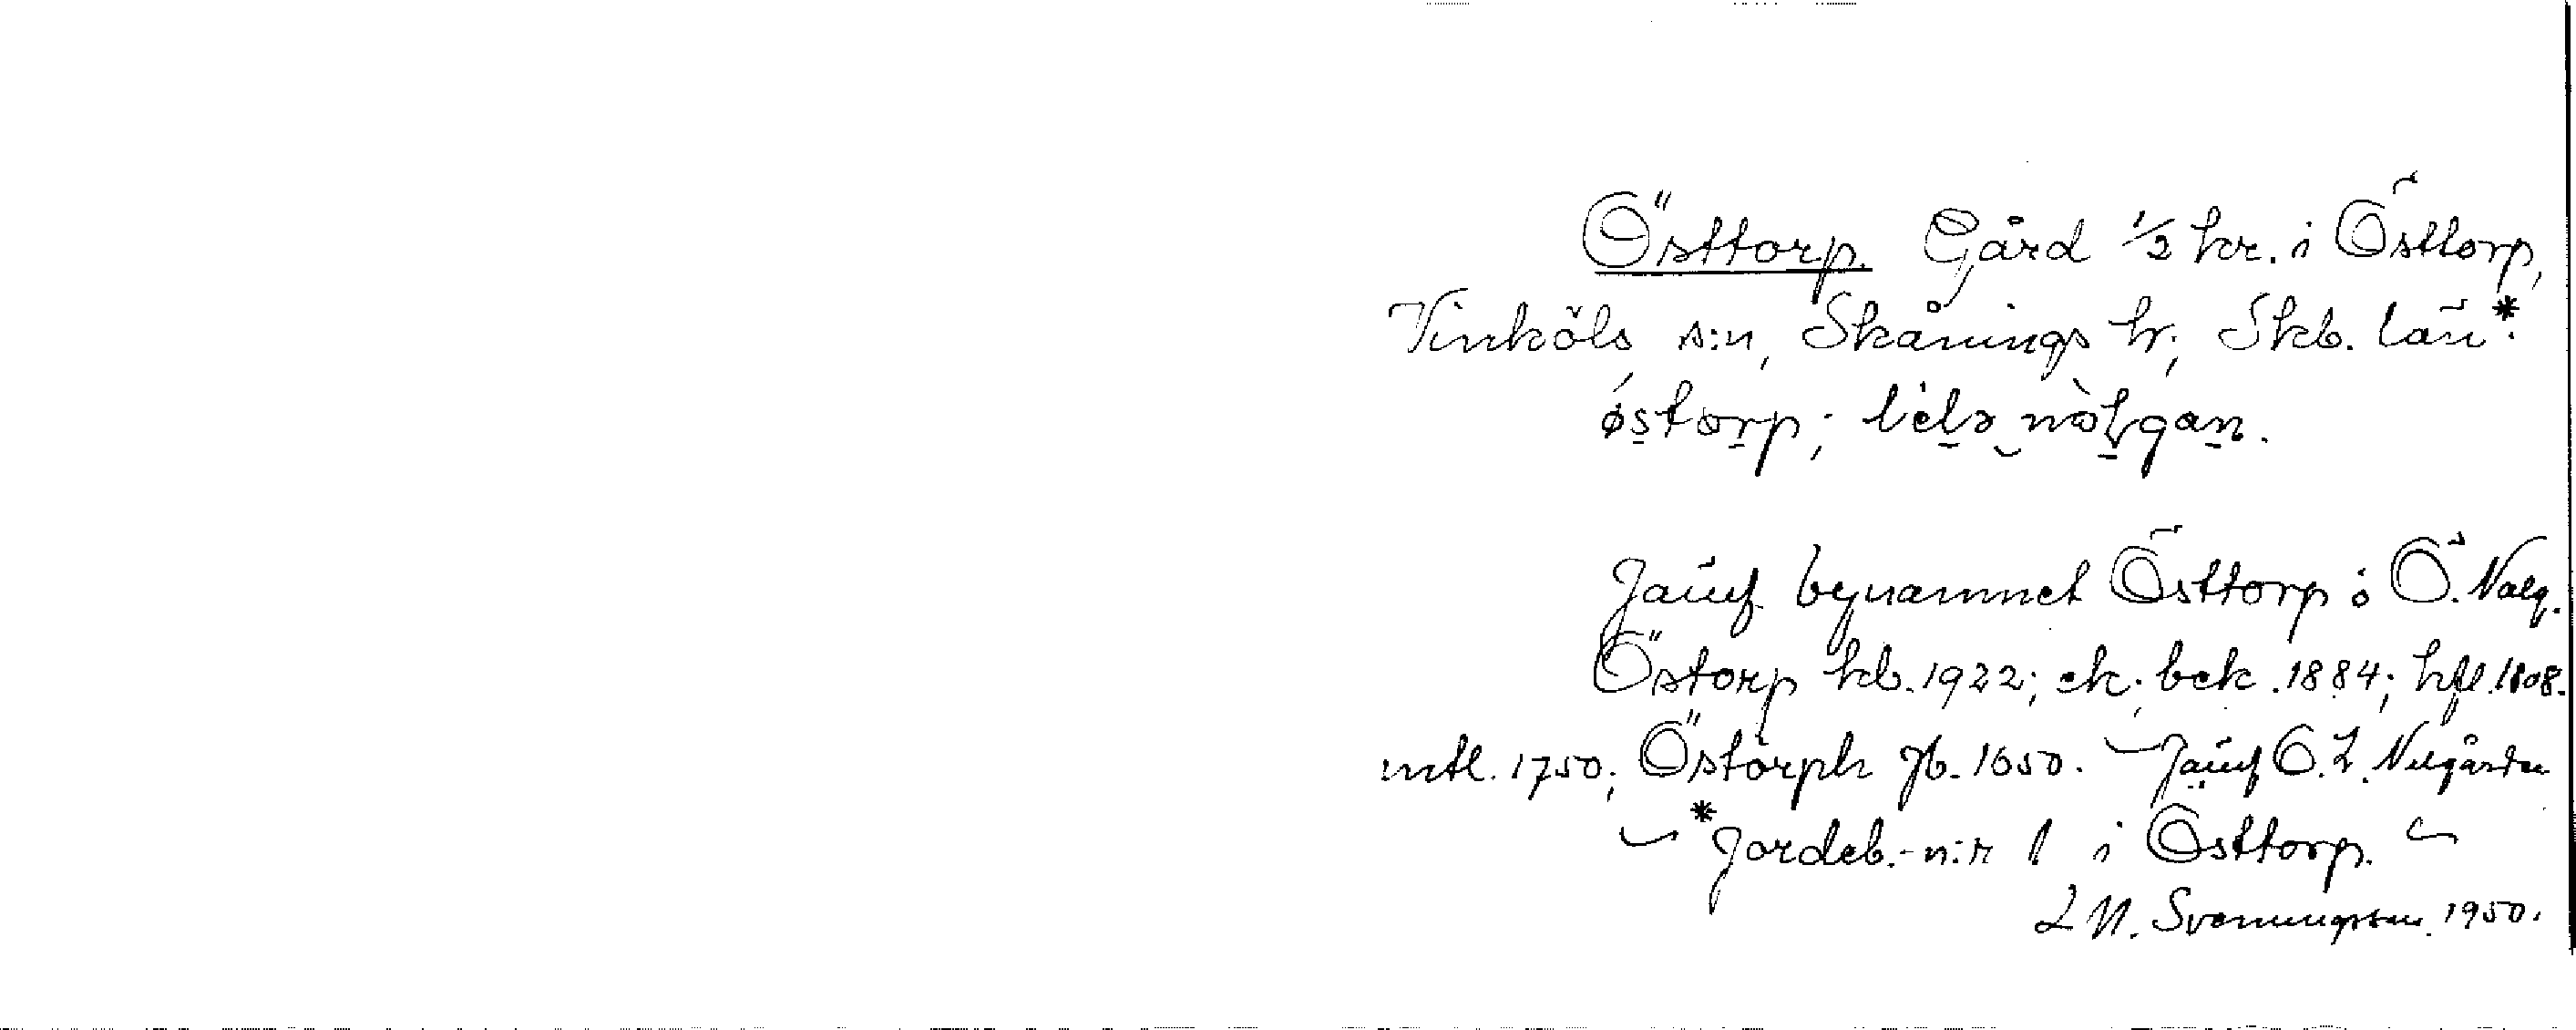 Östtorp. Gård 1/2 kr. i Östtorp,
Vinköls s:n, Skånings hr, Skb. län*.
östorp;
Jämf. bynamnet Östtorp o Ö. Nolg.
Östorp kb. 1922; ek. bek. 1884; hfl. 1808.
mtl. 1750; Östorph jb. 1650. – Jämf. Ö. L. Nolgården
– *Jordeb.-n:r 1 i Östtorp. –
L N. Svenungsson. 1950.